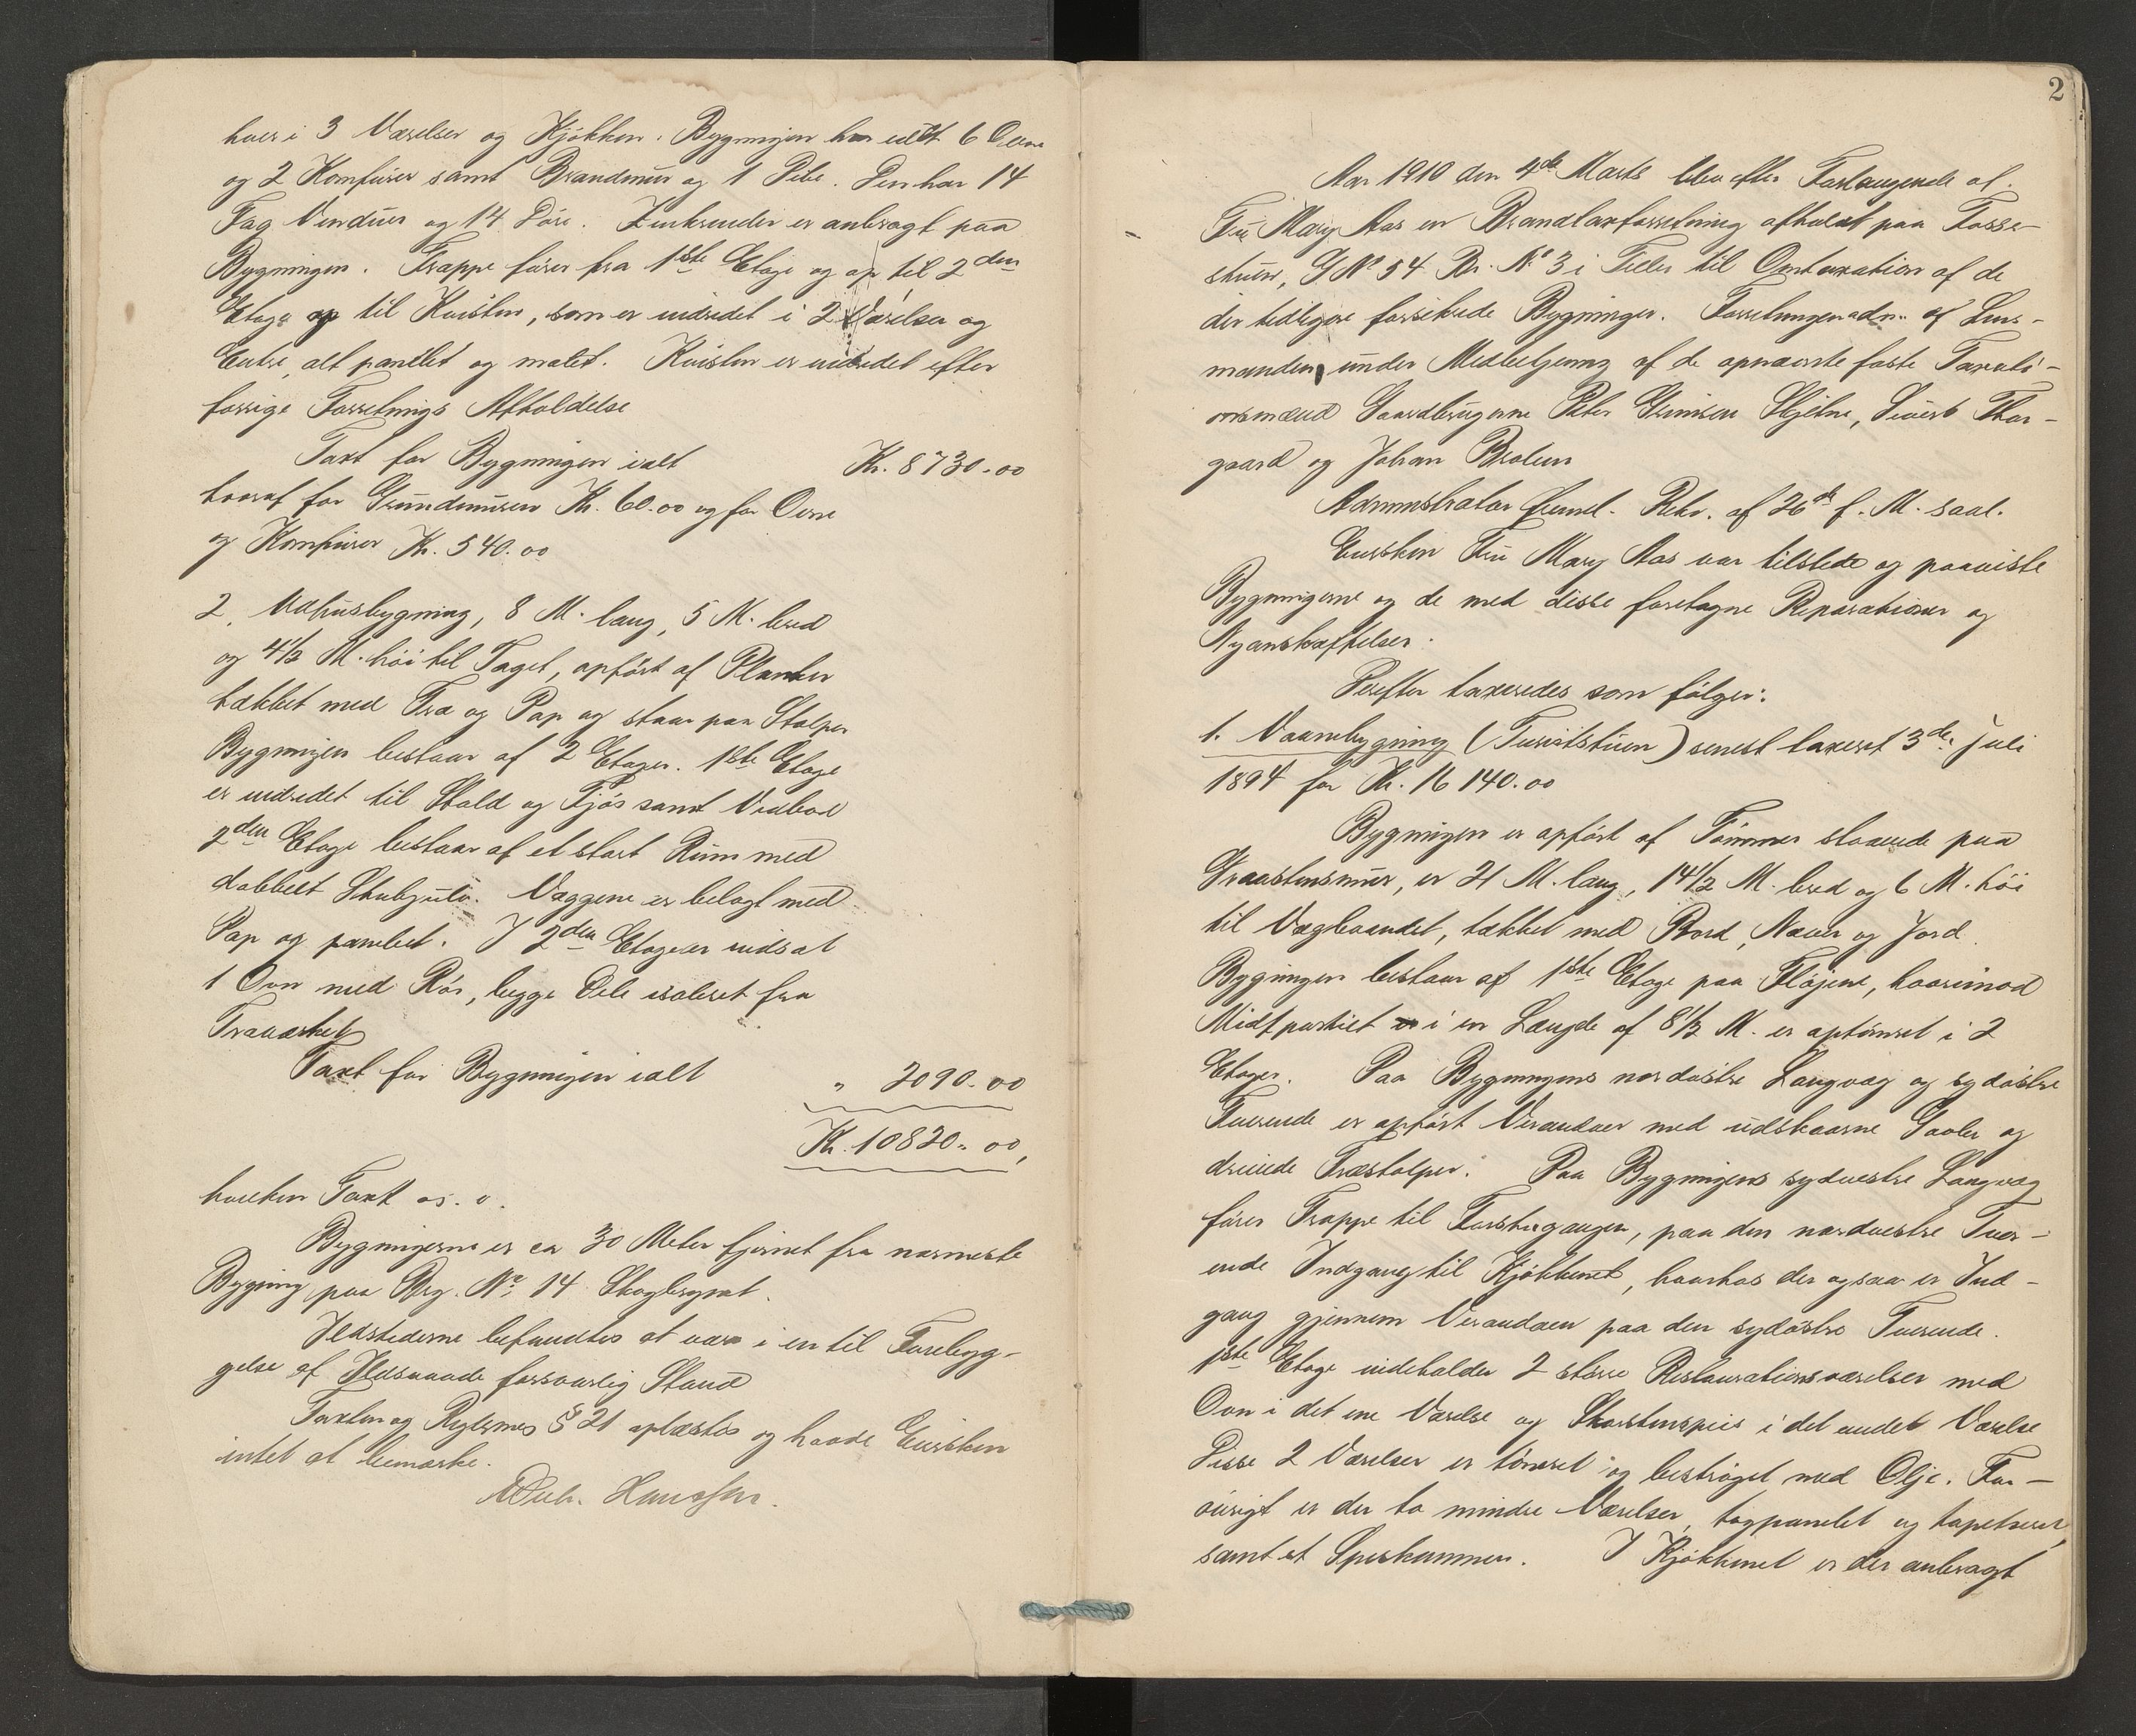 hver i 3 Værelser og Kjøkken. Bygningen har ialt 6 Ovne
og 2 Komfurer samt Brandmur og 1 Pibe. Den har 14
Fag Vinduer og 14 Døre. Zinkrender er anbragt paa
Bygningen. Trappe fører fra 1ste Etage og op til 2den
Etage og til Kvisten, som er indredet i 2 Værelser og
Entre, alt panelet og malet. Kvisten er indredet efter
forrige Forretnings Afholdelse
Taxt for Bygningen ialt Kr. 8730.00
hvoraf for Grundmuren Kr. 60.00 og for Ovne
og Komfurer Kr. 540.00
2. Udhusbygning, 8 M. lang, 5 M. bred
og 4 1/2 M. høi til Taget, opført af Planker
tækket med Træ og Pap og staar paa Stolper
Bygningen bestaar af 2 Etager. 1ste Etage
er indredet til Stald og Fjøs samt Vedbod
2den Etage bestaar af et stort Rum med
dobbelt Stubgulv. Væggene er belagt med
Pap og panelet. I 2den Etage er indsat
1 Ovn med Rør, begge Dele isoleret fra
Træværket
Taxt for Bygningen ialt " 2090.00
Kr. 10820.00,
hvilken Taxt o. s. v.
Bygningerne er ca 30 Meter fjernet fra nærmeste
Bygning paa Brg. No. 14 Skogbrynet.
Ildstederne befandtes at være i en til Forebyg-
gelse af Ildsvaade forsvarlig Stand
Taxten og Reglernes § 21 oplæstes og havde Eiersken
intet at bemærke.
2
Aar 1910 den 4de Marts blev efter Forlangende af
Fru Mary Aas en Brandtaxforretning afholdt paa Fosse-
stuen, G No 54 Br. No 3 i Tiller til Omtaxation af de
der tidligere forsikrede Bygninger. Forretningen adm. af Lens-
manden under Medbetjening af de opnævnte faste Taxati-
onsmænd Gaardbrugerne Peter Grimsen Skjetne, Sivert Thor-
gaard og Johan Bratlien
Administrator freml. Rekv. af 26de f. M. saal.
Eiersken Fru Mary Aas var tilstede og paaviste
Bygningerne og de med disse foretagne Reparationer og
Nyanskaffelser.
Derefter taxeredes som følger:
1. Vaanebygning (Turiststuen) senest taxeret 3de Juli
1894 for Kr. 16 140.00
Bygningen er opført af Tømmer staaende paa
Graastensmur, er 21 M. lang, 14 1/2 M. bred og 6 M. høi
til Vægbaandet, tækket med Bord, Næver og Jord.
Bygningen bestaar af 1ste Etage paa Fløjene, hvorimod
Midtpartiet i en Længde af 8 1/2 M. er optømret i 2
Etager. Paa Bygningens nordøstre Langvæg og sydøstre
Tverende er opført Verandaer med udskaarne Gavler og
dreiede Træstolper. Paa Bygningens sydvestre Langvæg
fører Trappe til Forstugangen, paa den nordvestre Tver-
ende Indgang til Kjøkkenet, hvorhos der ogsaa er Ind-
gang gjennem Verandaen paa den sydøstre Tverende.
1ste Etage indeholder 2 større Restaurationsværelser med
Ovn i det ene Værelse og Skorstenspeis i det andet Værelse
Disse 2 Værelser er tømret og bestrøget med Olje. For-
øvrigt er der to mindre Værelser, tagpanelet og tapetseret
samt et Spiskammer. I Kjøkkenet er der anbragt